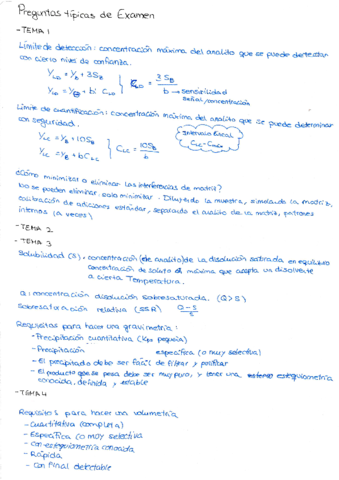 Preguntas típicas de Examen
- TEMA 1
Límite de detección: concentración máxima del analito que se puede dertectar
con cierto nivel de confianza.
Y_LD = Y_B + 3S_B
Y_LD = Y_B + b C_LD } C_LD = 3S_B / b → sensibilidad
señal/concentración
Límite de cuantificación: concentración máxima del analito que se puede determinar
con seguridad.
Y_LC = Y_B + 10S_B
Y_LC = Y_B + b C_LC } C_LC = 10S_B / b
Intervalo lineal
¿Cómo minimizar o eliminar las interferencias de matriz?
No se pueden eliminar. solo minimitar. Diluyendo la muestra, simulando la matriz,
calibración de adiciones estándar, separando el analito de la matriz, patrones
internos (a veces)
- TEMA 2
- TEMA 3
Solubilidad (S): concentración (de analito) de la disolución saturada en equilibrio
concentración de soluto el máxima que acepta un disolvente
a cierta Temperatura.
Q: concentración disolución sobresaturada. (Q>S)
Sobresaturación relativa (SSR) Q-S / S
Requisitos para hacer una gravimetría:
- Precipitación cuantitativa (Kps pequeña)
- Precipitación específica (o muy selectiva)
- El precipitado debe ser fácil de filtrar y purificar
- El producto que se pesa debe ser muy puro, y tener una estequiometría
conocida, definida y estable
- TEMA 4
Requisitos para hacer una volumetría
- Cuantitativa (completa)
- Específica (o muy selectiva)
- Con estequiometría conocida
- Rápida
- Con Final detectable